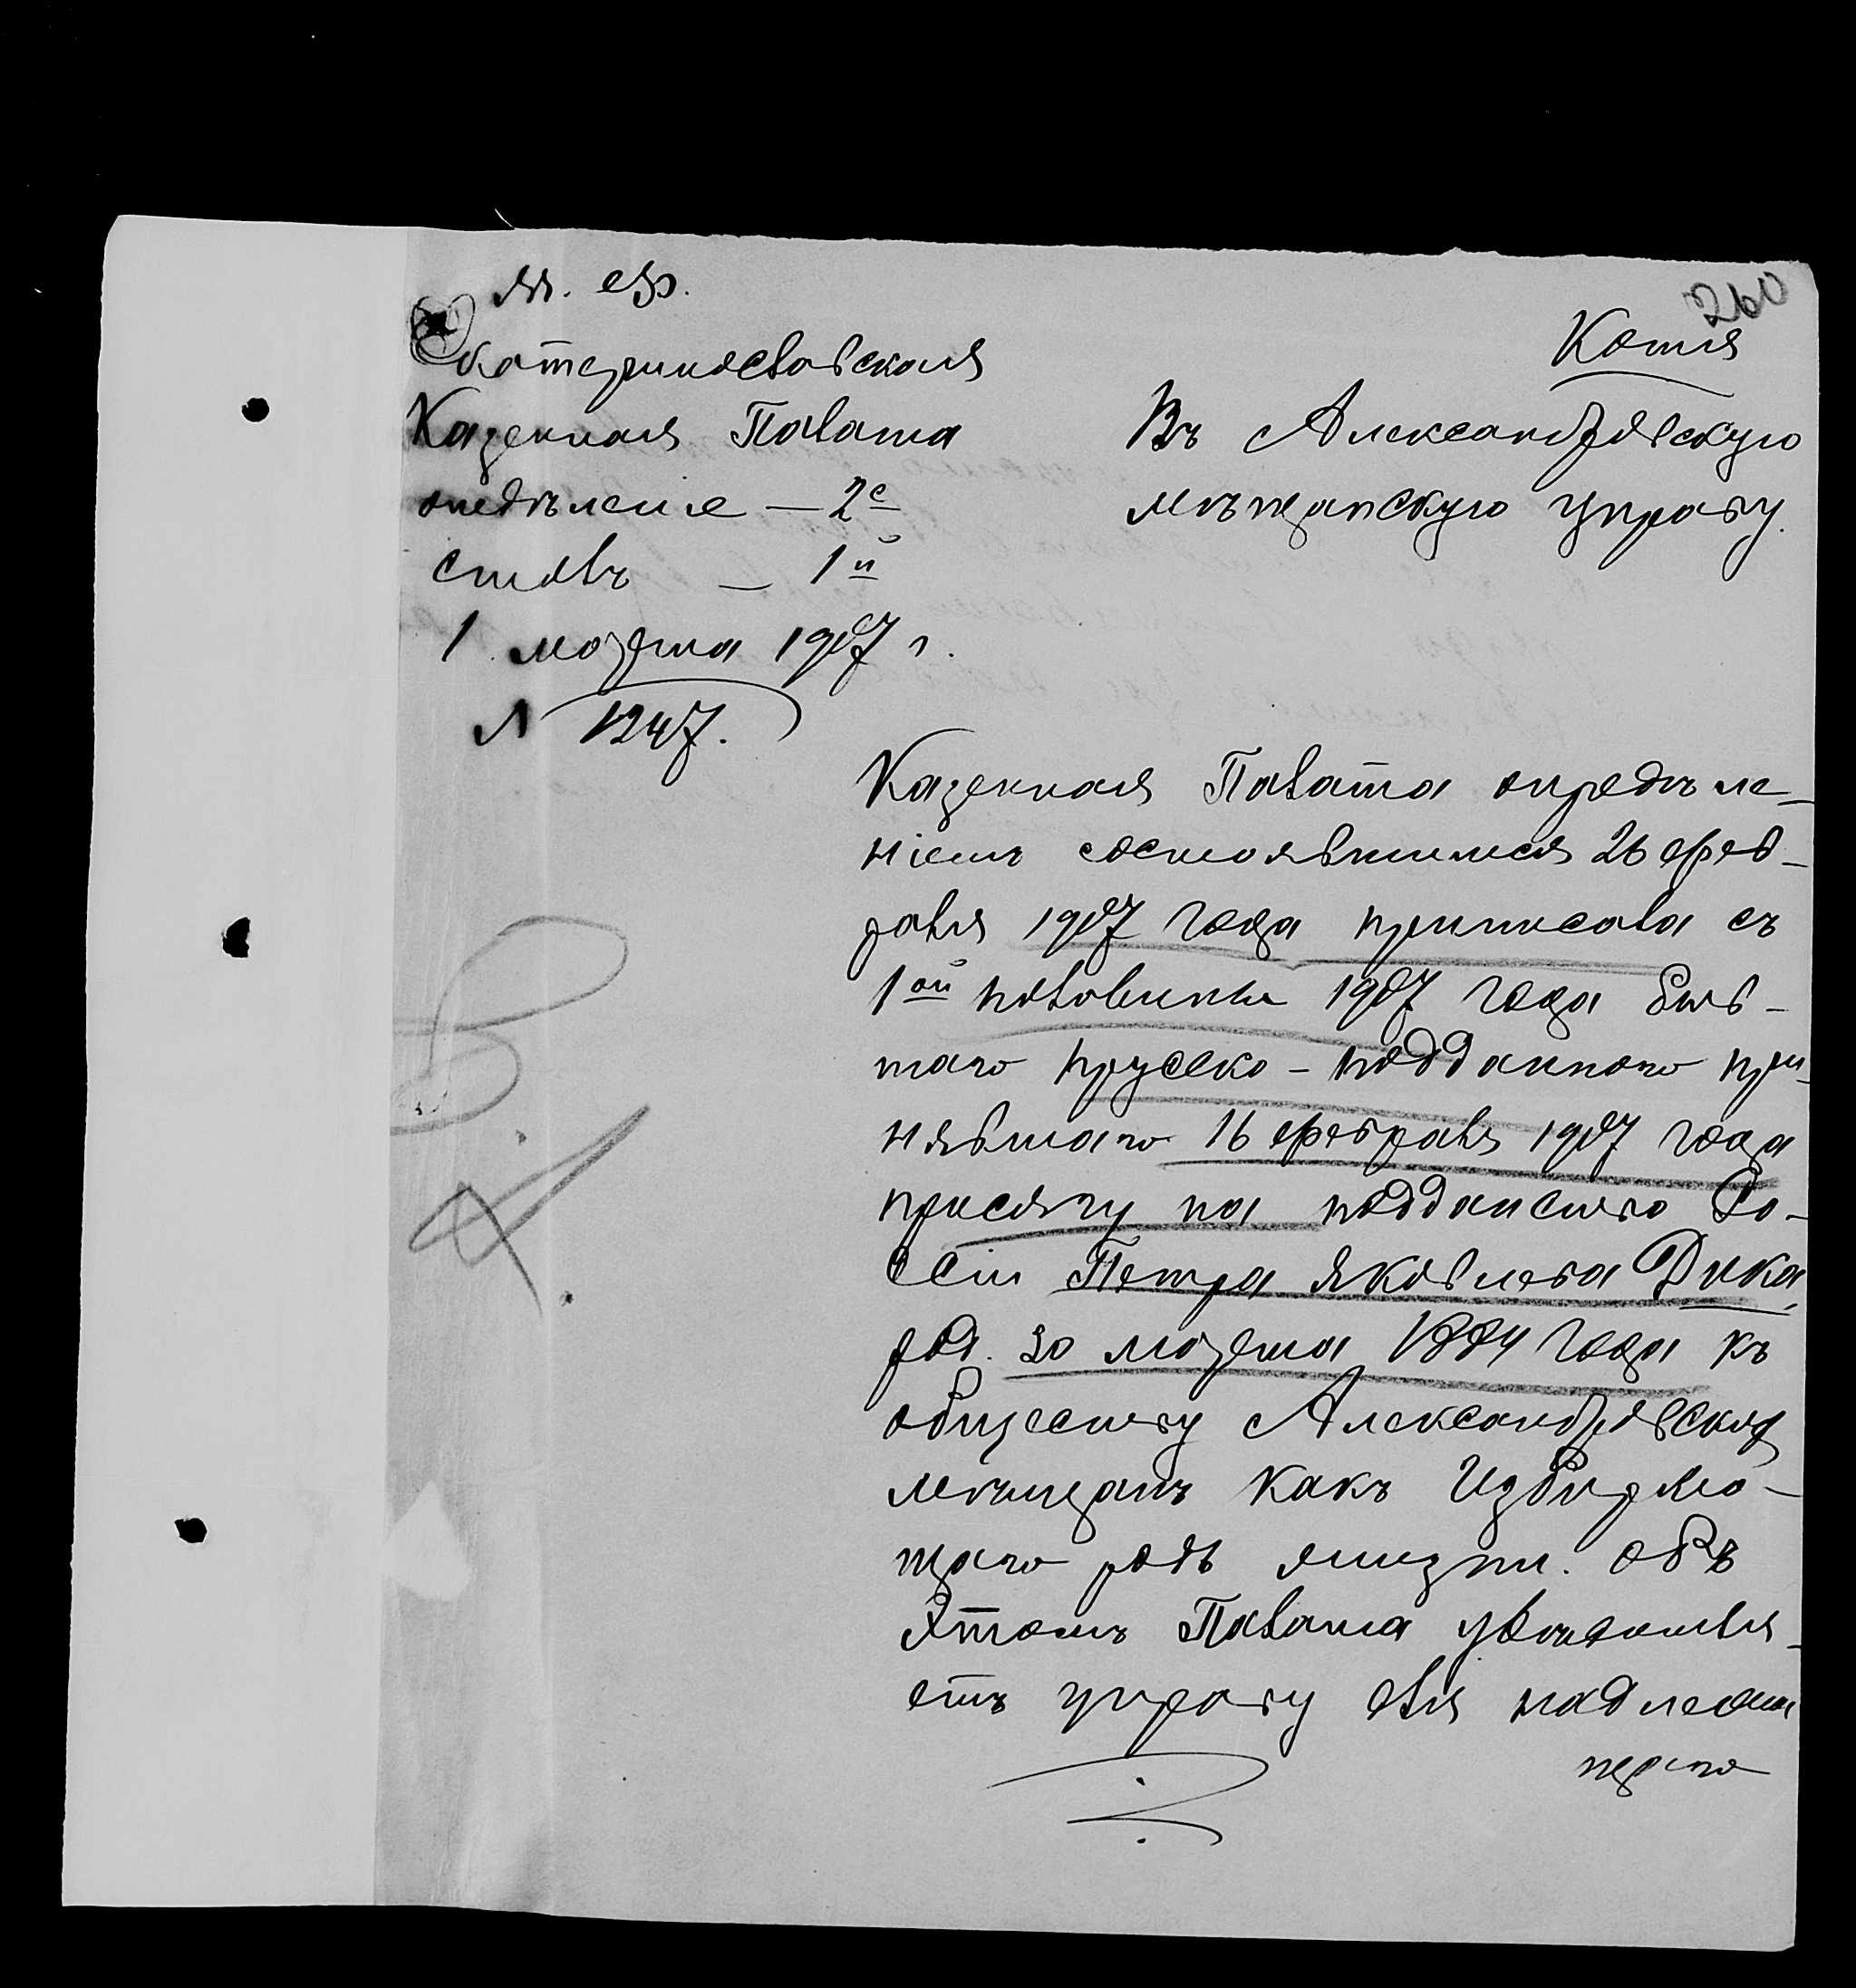 М. Ф.
260
Копія
Екатеринославская
Казенная Палата
отдѣленіе — 2е
столъ — 1й
1 марта 1907 г.
№ 1247.
Въ Александровскую
мѣщанскую управу.
Казенная Палата опредѣле-
ніемъ состоявшимся 26 фев-
раля 1907 года приписала съ
1ой половины 1907 года быв-
шаго прусско-подданного при-
нявшаго 16 февраля 1907 года
присягу на подданство Ро-
ссіи Петра Яковлева Дика,
род. 30 марта 1884 года къ
обществу Александровскихъ
мѣщанъ какъ избирею-
щаго родъ жизни. Объ
этомъ Палата увѣдомля-
етъ управу для надлежа
щаго